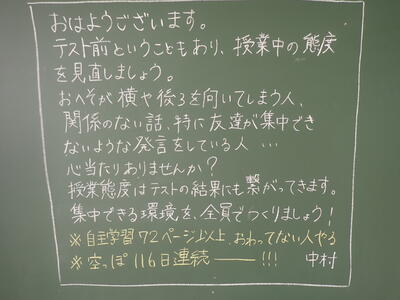 おはようございます。
テスト前ということもあり、授業中の態度
を見直しましょう。
おへそが横や後ろを向いてしまう人、
関係のない話、特に友達が集中でき
ないような発言をしている人…
心当たりありませんか？
授業態度はテストの結果にも繋がってきます。
集中できる環境を、全員でつくりましょう！
※自主学習72ページ以上、おわってない人やる
※空っぽ116日連続――!!! 中村